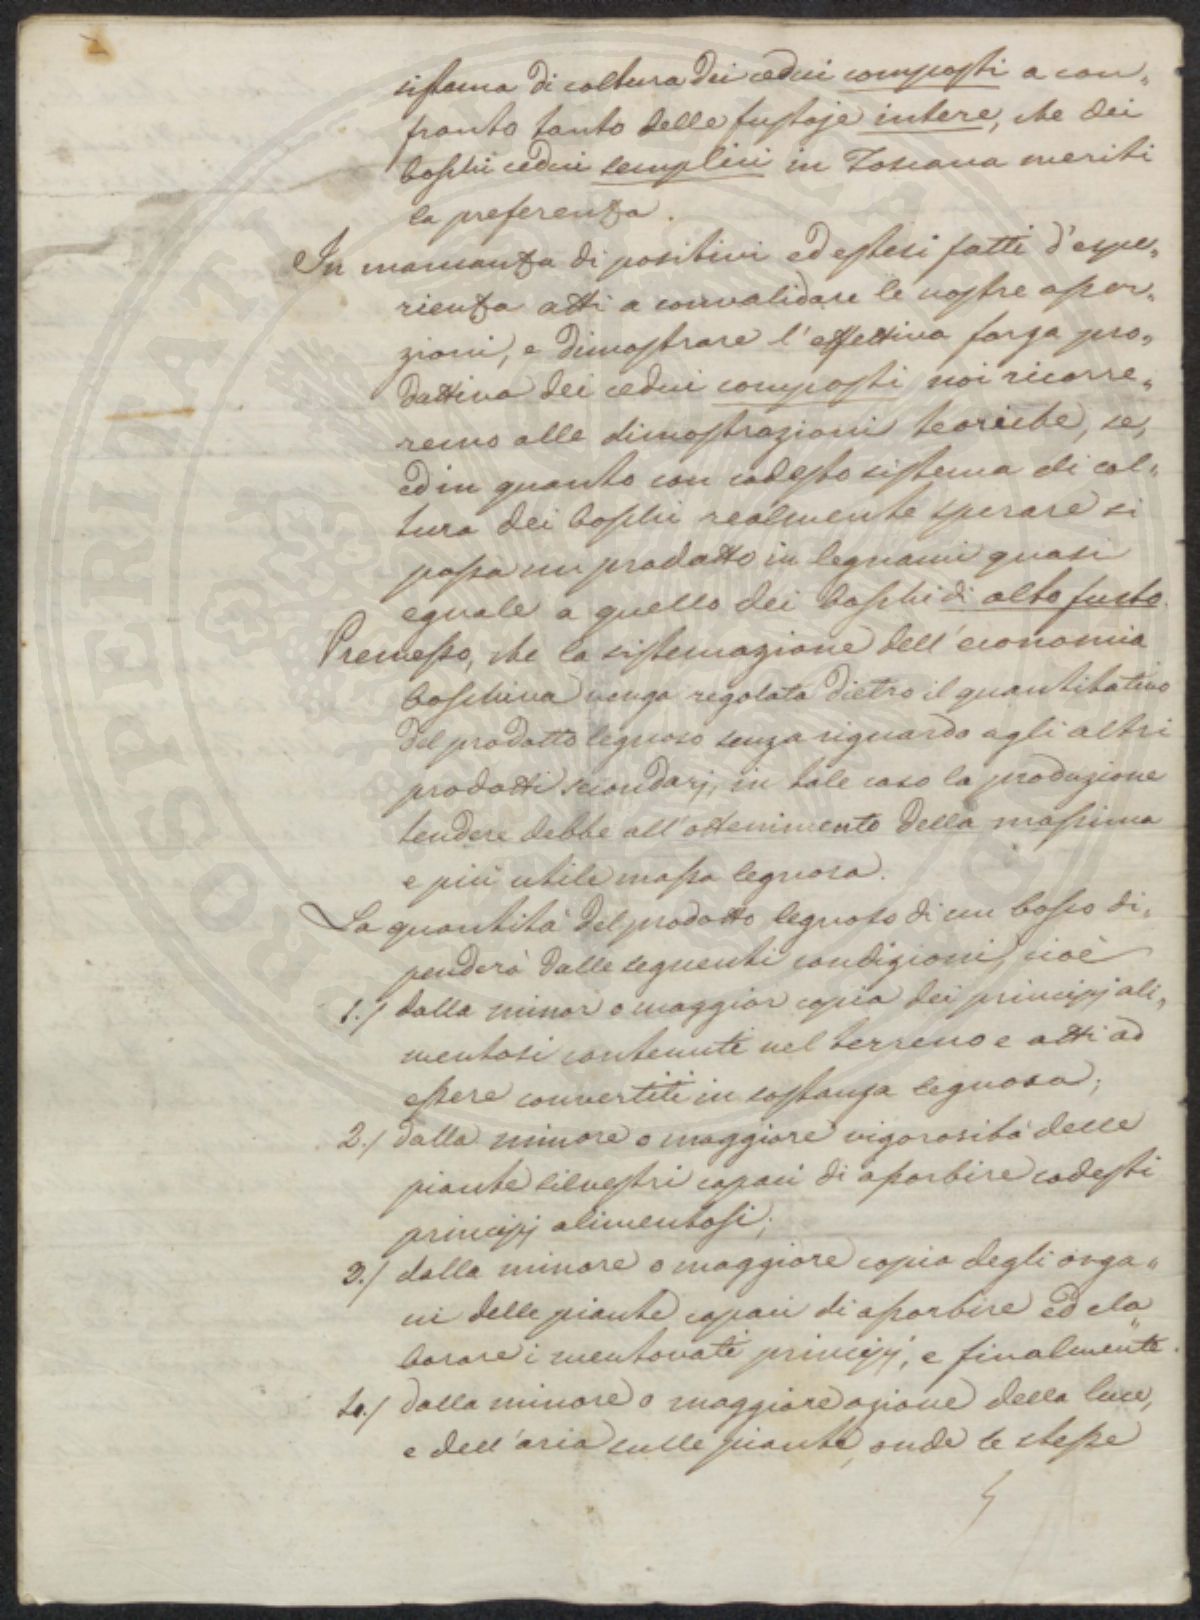 sistema di coltura dei cedui composti a con„
fronto tanto delle fustaje intere, che dei
boschi cedui semplici in Toscana meriti
la preferenza.
In mancanza di positivi ed estesi fatti d'espe„
rienza atti a convalidare le nostre asser„
zioni, e dimostrare l'effettiva forza pro„
duttiva dei cedui composti noi ricorre„
remo alle dimostrazioni teoriche, se,
ed in quanto con codesto sistema di col„
tura dei boschi realmente sperare si
possa un prodotto in legnami quasi
eguale a quello dei boschi di alto fusto.
Premesso, che la sistemazione dell'economia
boschiva venga regolata dietro il quantitativo
del prodotto legnoso senza riguardo agli altri
prodotti secondarj, in tale caso la produzione
tendere debbe all'ottenimento della massima
e più utile massa legnosa.
La quantità del prodotto legnoso di un bosco di„
penderà dalle seguenti condizioni, cioè
1./ dalla minor o maggior copia dei principj ali„
mentosi contenuti nel terreno e atti ad
essere convertiti in sostanza legnosa;
2./ dalla minore o maggiore vigorosità delle
piante silvestri capaci di assorbire codesti
principj alimentosi;
3./ dalla minore o maggiore copia degli orga„
ni delle piante capaci di assorbire ed ela„
borare i mentovati principj, e finalmente.
4./ dalla minore o maggiore azione della luce,
e dell'aria sulle piante, onde le stesse
PROSPERITATI